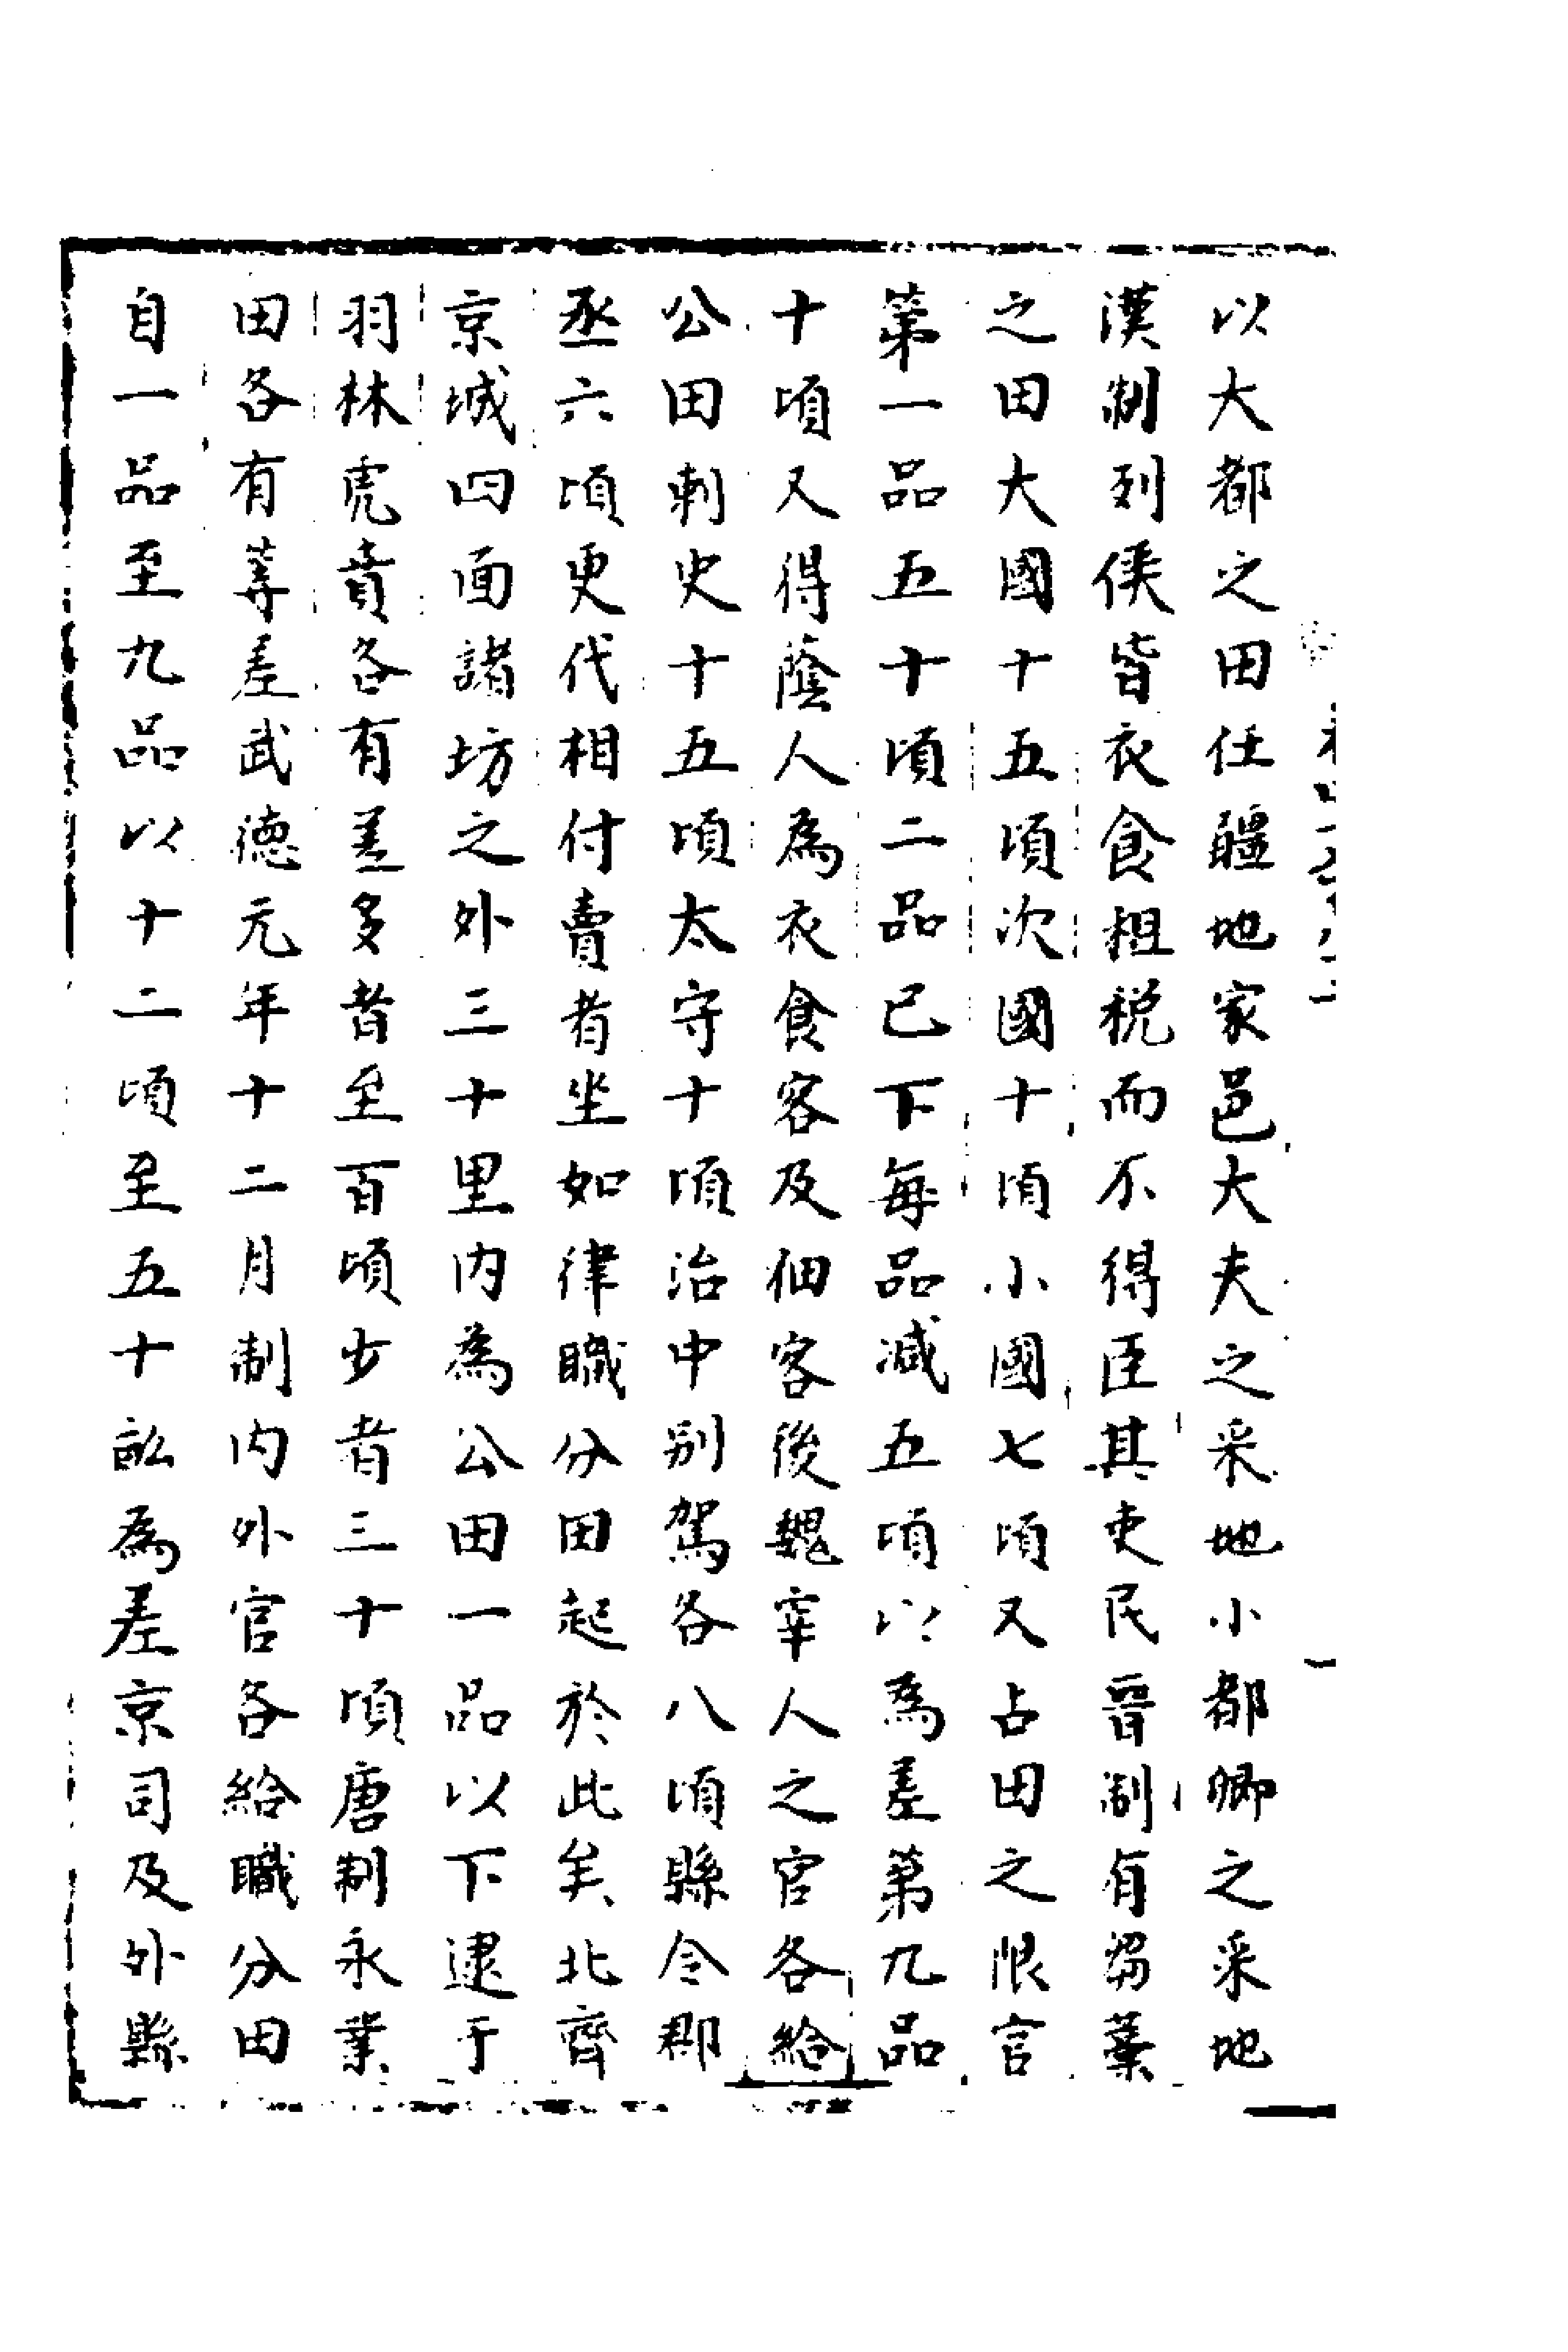 以大都之田任疆地家邑大夫之采地小都卿之采地
漢制列侯皆衣食租税而不得臣其吏民晉制有芻藁
之田大國十五頃次國十頃小國七頃又占田之限言
第一品五十頃二品已下每品減五頃以為差第九品
十頃又得蔭人為衣食客及佃客後魏宰人之官各給
公田刺史十五頃太守十頃治中别駕各八頃縣令郡
丞六頃更代相付賣者坐如律職分田起於此矣北齊
京城四面諸坊之外三十里内為公田一品以下逮于
羽林虎賁各有差多者至百頃少者三十頃唐制永業
田各有等差武德元年十二月制内外官各給職分田
自一品至九品以十二頃至五十畝為差京司及外縣